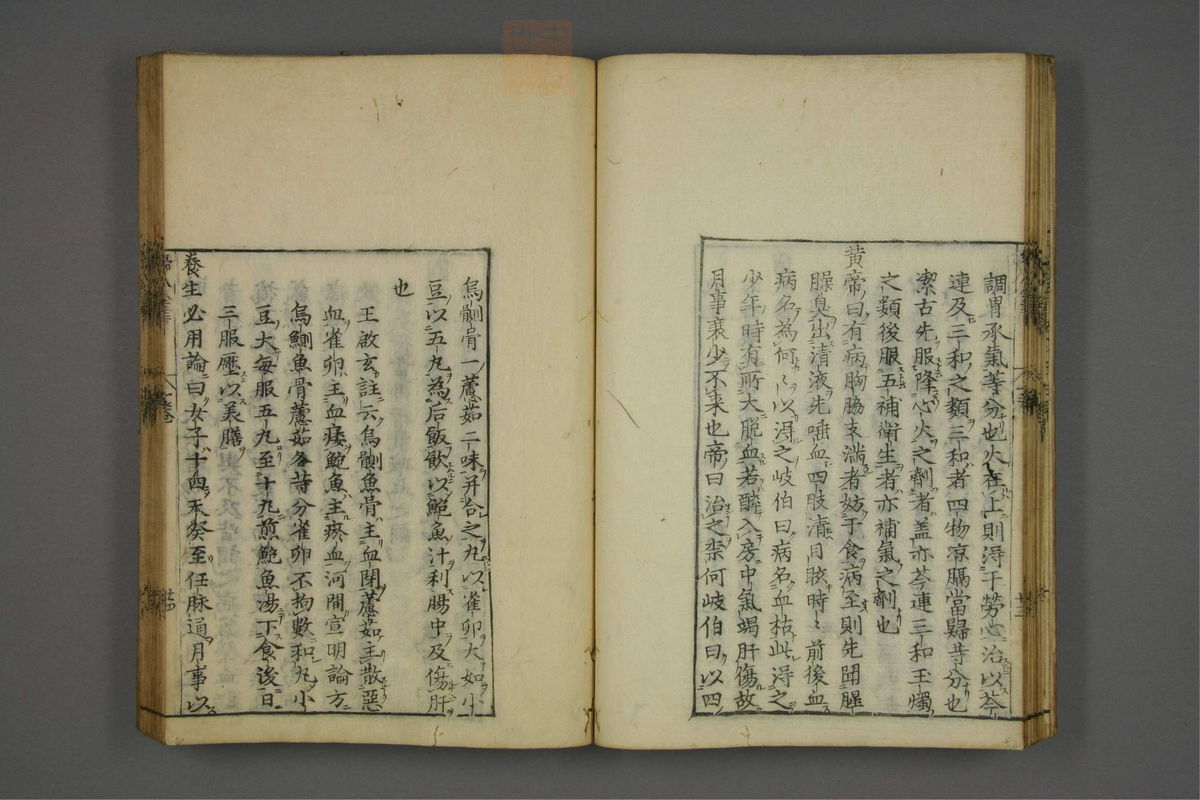 調胃承氣等分也火在上則得于勞心治以芩
連及三和之類三和者四物凉膈當歸等分也
潔古先服降心火之劑者盖亦芩連三和玉燭
之類後服五補衛生者亦補氣之劑也
黄帝曰有病胸脇支満者妨于食病至則先聞腥
臊臭出清液先唾血四肢清目眩時〻前後血
病名為何〻以得之岐伯曰病名血枯此得之
少年時有所大脱血若醉入房中氣竭肝傷故
月事衰少不来也帝曰治之柰何岐伯曰以四
烏鰂骨一藘茹二味并合之丸以雀卵大如小
豆以五丸為后飯飲以鮑魚汁利腸中及傷肝
也
王啟玄註云烏鰂魚骨主血閉藘茹主散惡
血雀卵主血痿鮑魚主瘀血河間宣明論方
烏鰂魚骨藘茹各等分雀卵不拘數和丸小
豆大每服五丸至十丸煎鮑魚湯下食後日
三服壓以美膳
養生必用論曰女子十四天癸至任脉通月事以